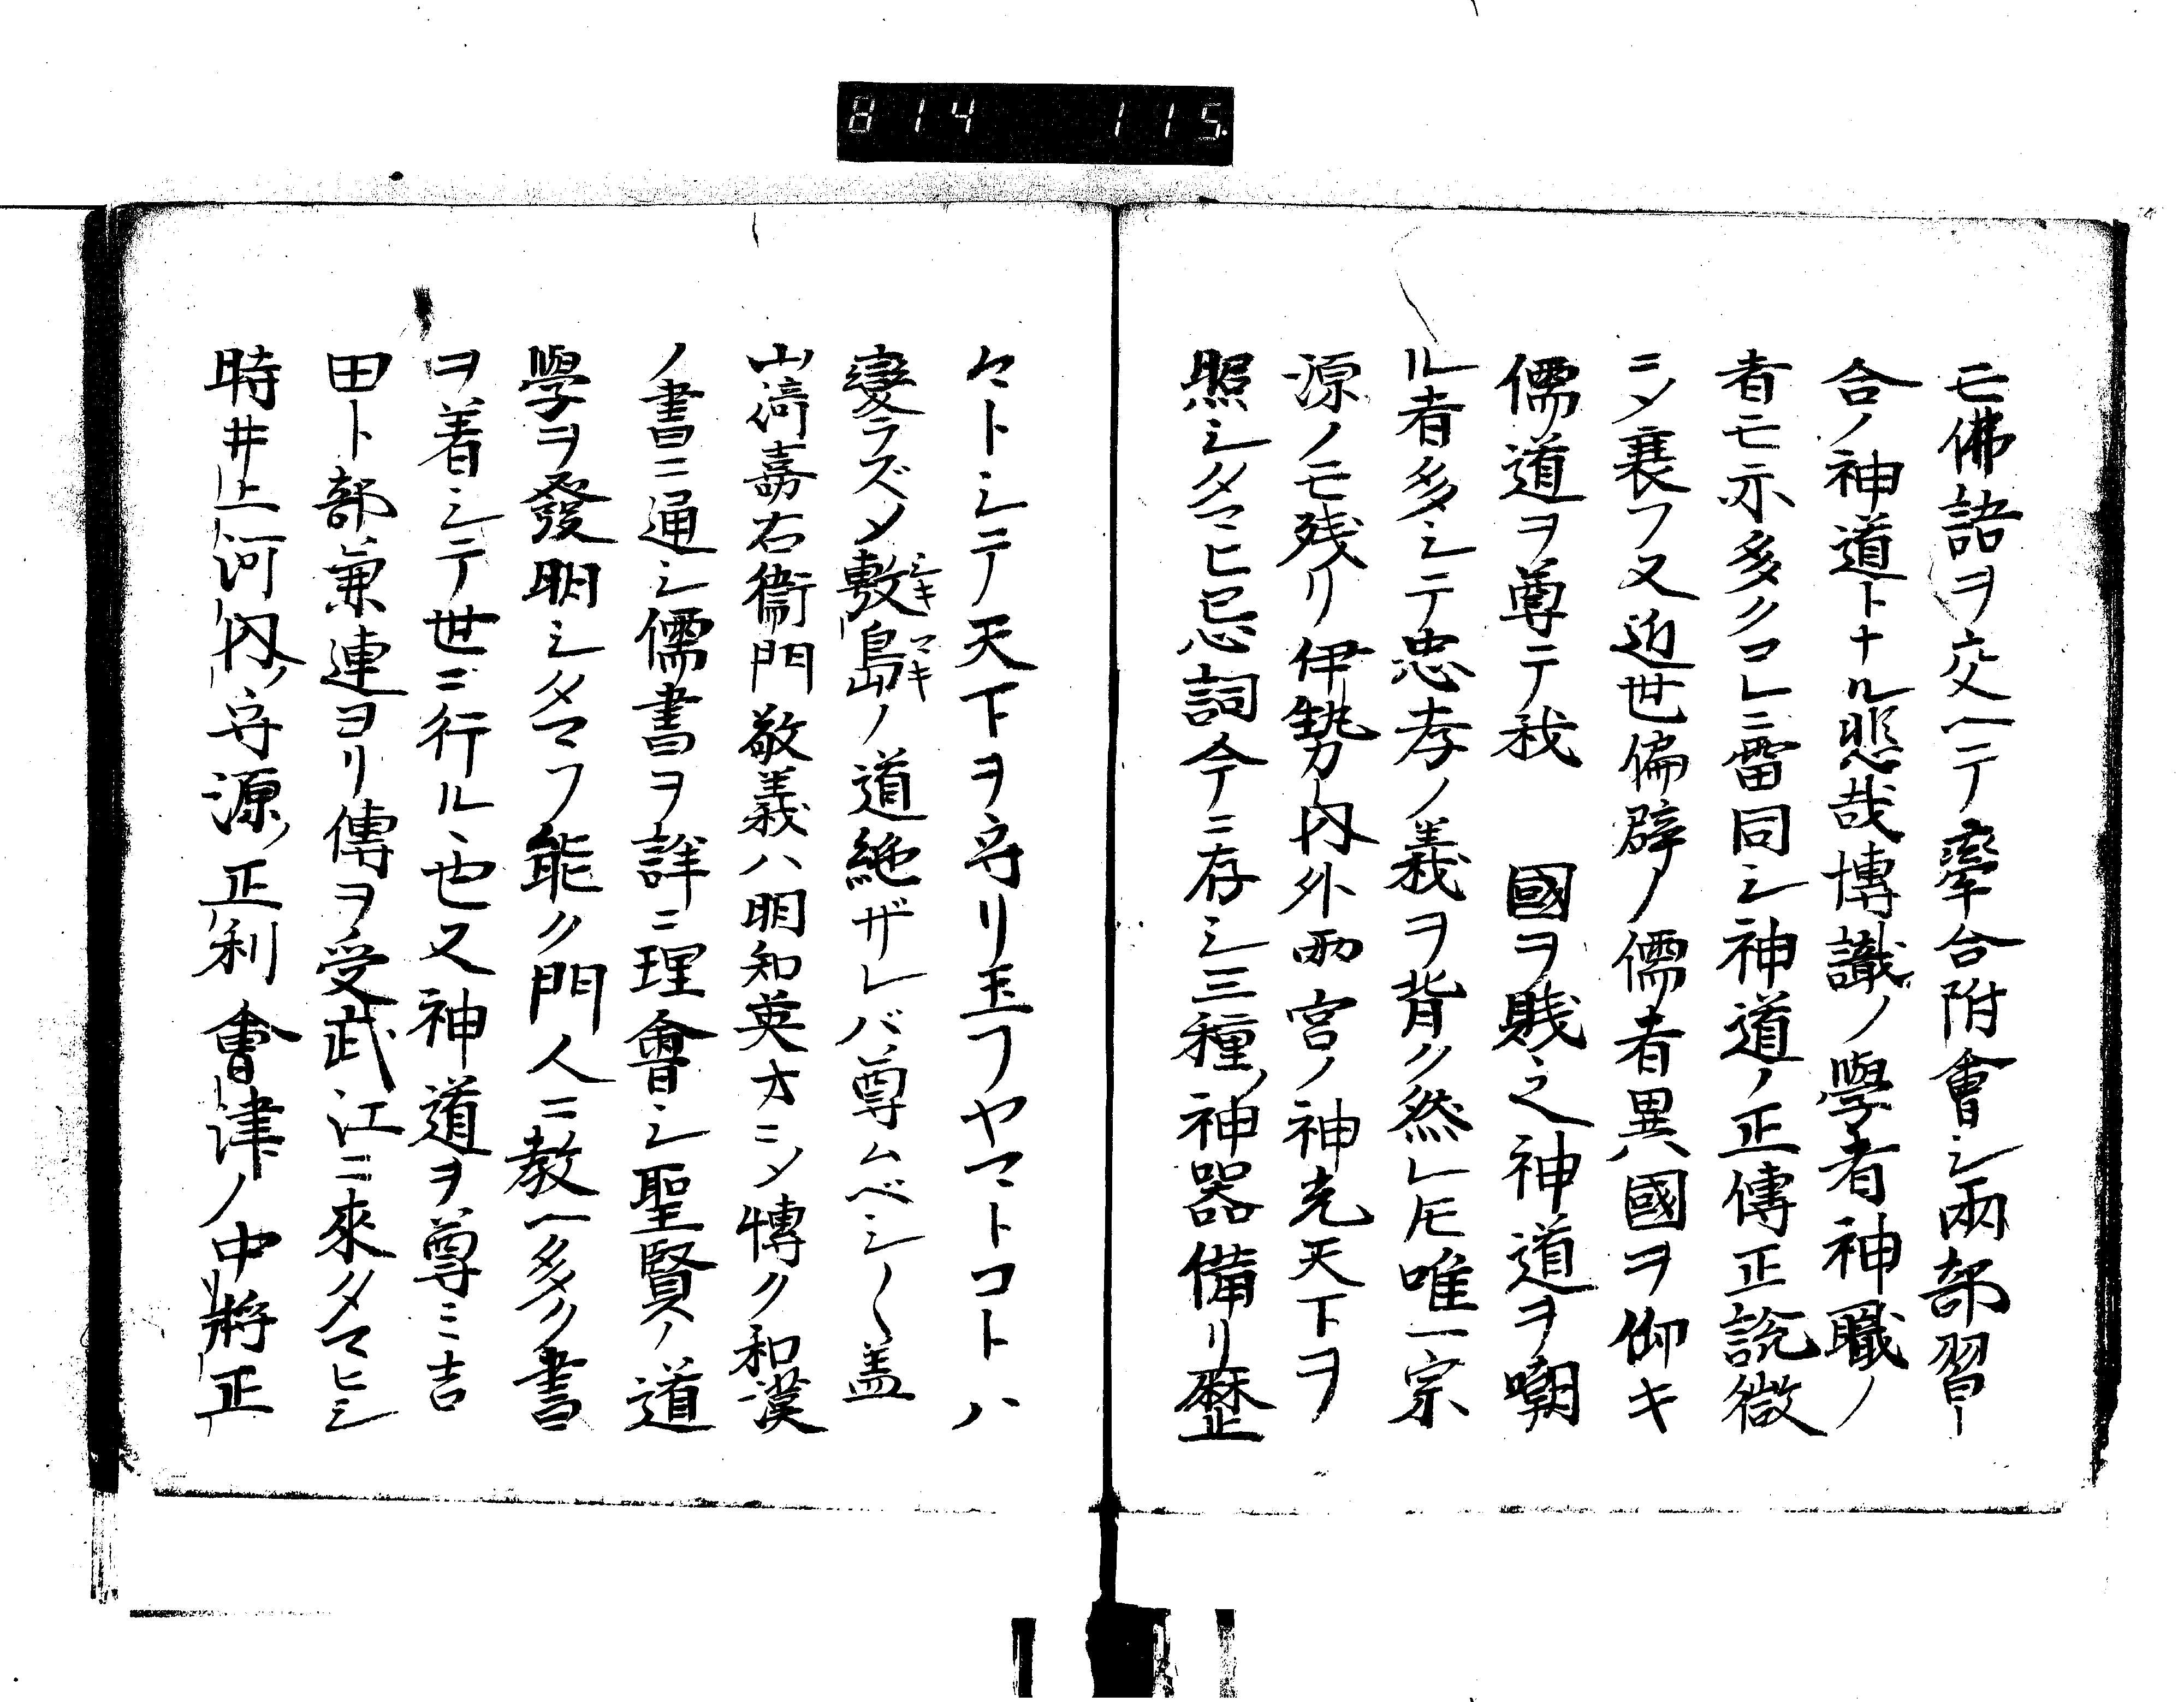 814 115
モ佛語ヲ交ヘテ牽合附會シ兩部習
合ノ神道トナル悲哉博識ノ學者神職ノ
者モ亦多クコレニ雷同シ神道ノ正傳正說微
ニメ衰フ又近世偏辟ノ儒者異國ヲ仰キ
儒道ヲ尊テ我 國ヲ賤之神道ヲ嘲
ル者多シテ忠孝ノ義ヲ背ク然レ𪜈唯一宗
源ノモ残リ伊勢内外兩宮ノ神光天下ヲ
照シタマヒ忌詞今ニ存シ三種ノ神器備リ歷
々トシテ天下ヲ守リ玉フヤマトコトハ
變ラズメ敷島ノ道絶ザレバ尊ムベシ〱盖
シキ マキ
山﨑嘉右衞門敬義ハ明知英才ニメ博ク和漢
ノ書ニ通シ儒書ヲ詳ニ理會シ聖賢ノ道
學ヲ發明シタマフ能ク門人ニ教ヘ多ク書
ヲ着シテ世ニ行ルヽ也又神道ヲ尊ミ吉
田卜部兼連ヨリ傳ヲ受武江ニ來タマヒシ
時井上河内ノ守源ノ正利會津ノ中將正